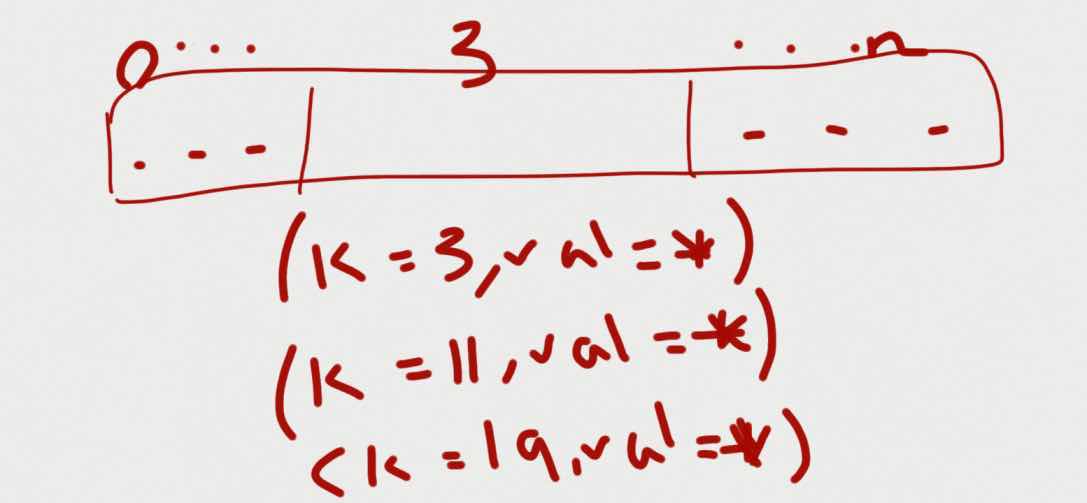 0 ... 3 ... n
. - - - - -
(K = 3, val = *)
(K = 11, val = *)
(K = 19, val = *)